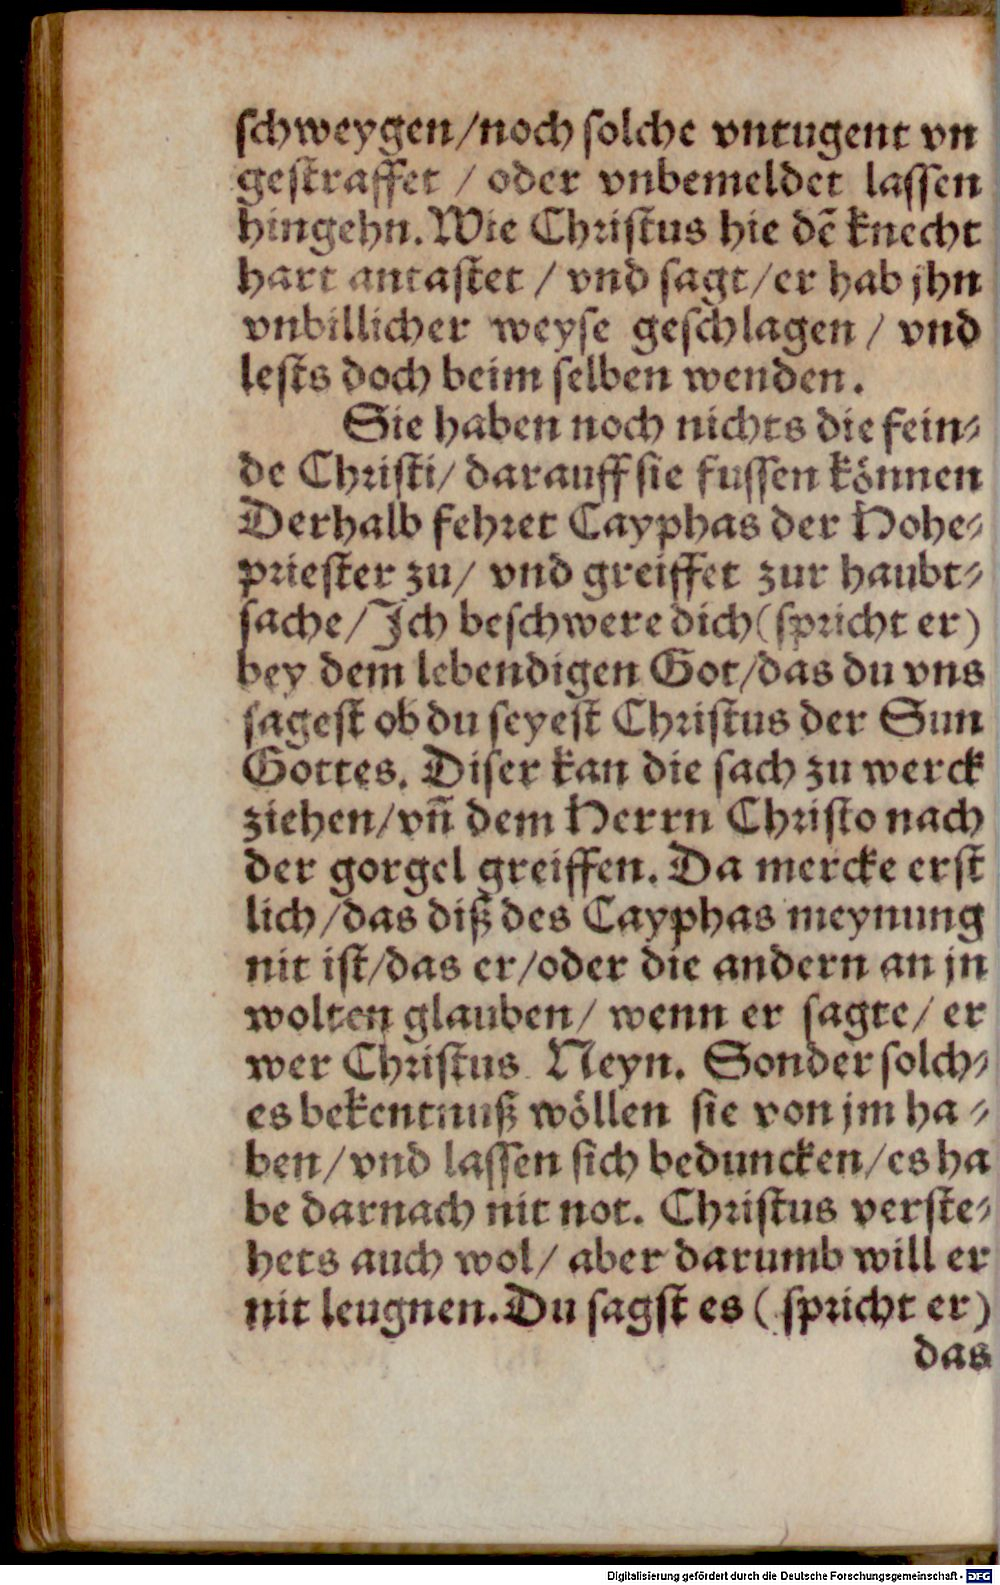 schweygen/noch solche vntugent vn
gestraffet / oder vnbemeldet lassen
hingehn. Wie Christus hie dē knecht
hart antastet / vnd sagt/er hab jhn
vnbillicher weyse geschlagen / vnd
lests doch beim selben wenden.
Sie haben noch nichts die fein⸗
de Christi/ darauff sie fussen können
Derhalb fehret Cayphas der Hohe⸗
priester zu/ vnd greiffet zur haubt⸗
sache/Ich beschwere dich (spricht er)
bey dem lebendigen Got/das du vns
sagest ob du seyest Christus der Sun
Gottes. Diser kan die sach zu werck
ziehen/vn̄ dem Herrn Christo nach
der gorgel greiffen. Da mercke erst
lich/das diß des Cayphas meynung
nit ist/das er/oder die andern an jn
wolten glauben/ wenn er sagte/ er
wer Christus. Neyn. Sonder solch⸗
es bekentnuß wöllen sie von jm ha⸗
ben/vnd lassen sich beduncken/es ha
be darnach nit not. Christus verste⸗
hets auch wol/ aber darumb will er
nit leugnen. Du sagst es ( spricht er)
das
Digitalisierung gefördert durch die Deutsche Forschungsgemeinschaft - DFG